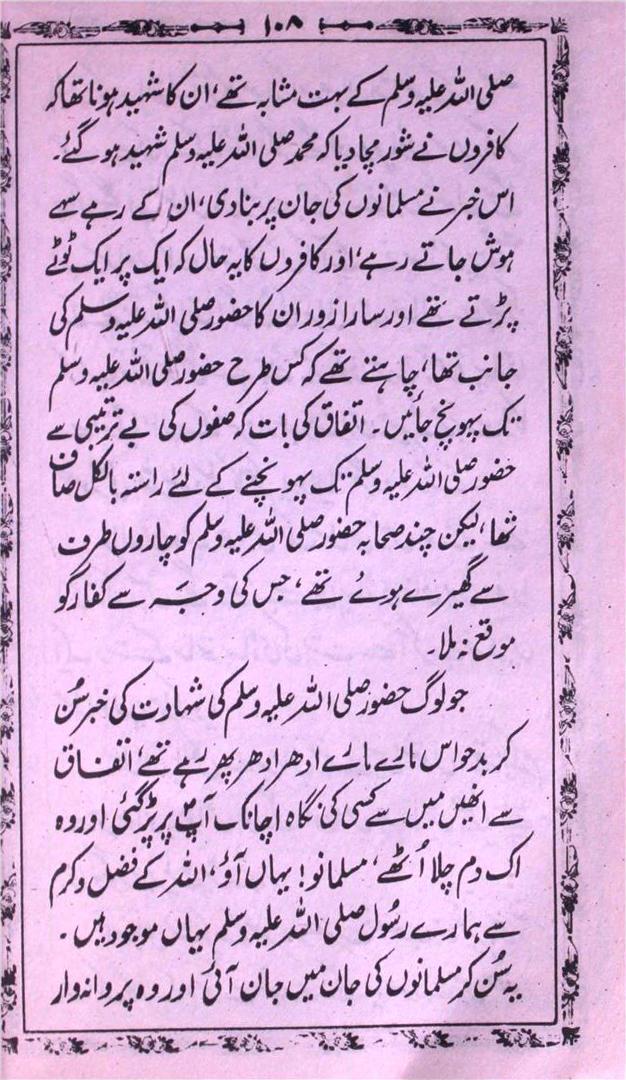 ۱۰۸
صلی اللہ علیہ وسلم کے بہت مشابہ تھے، ان کا شہید ہونا تھا کہ
کافروں نے شور مچا دیا کہ محمد صلی اللہ علیہ وسلم شہید ہو گئے۔
اس خبر نے مسلمانوں کی جان پر بنا دی، ان کے رہے سہے
ہوش جاتے رہے، اور کافروں کا یہ حال کہ ایک پر ایک ٹوٹے
پڑتے تھے اور سارا زور ان کا حضور صلی اللہ علیہ وسلم کی
جانب تھا، چاہتے تھے کہ کس طرح حضور صلی اللہ علیہ وسلم
تک پہونچ جائیں۔ اتفاق کی بات کہ صفوں کی بے ترتیبی سے
حضور صلی اللہ علیہ وسلم تک پہونچنے کے لئے راستہ بالکل صاف
تھا، لیکن چند صحابہ حضور صلی اللہ علیہ وسلم کو چاروں طرف
سے گھیرے ہوئے تھے، جس کی وجہ سے کفار کو
موقع نہ ملا۔
جو لوگ حضور صلی اللہ علیہ وسلم کی شہادت کی خبر سُن
کر بدحواس مارے مارے ادھر ادھر پھر رہے تھے، اتفاق
سے انھیں میں سے کسی کی نگاہ اچانک آپؐ پر پڑ گئی اور وہ
اک دم چلا اُٹھے، مسلمانو! یہاں آؤ، اللہ کے فضل و کرم
سے ہمارے رسُول صلی اللہ علیہ وسلم یہاں موجود ہیں۔
یہ سُن کر مسلمانوں کی جان میں جان آئی اور وہ پروانہ وار